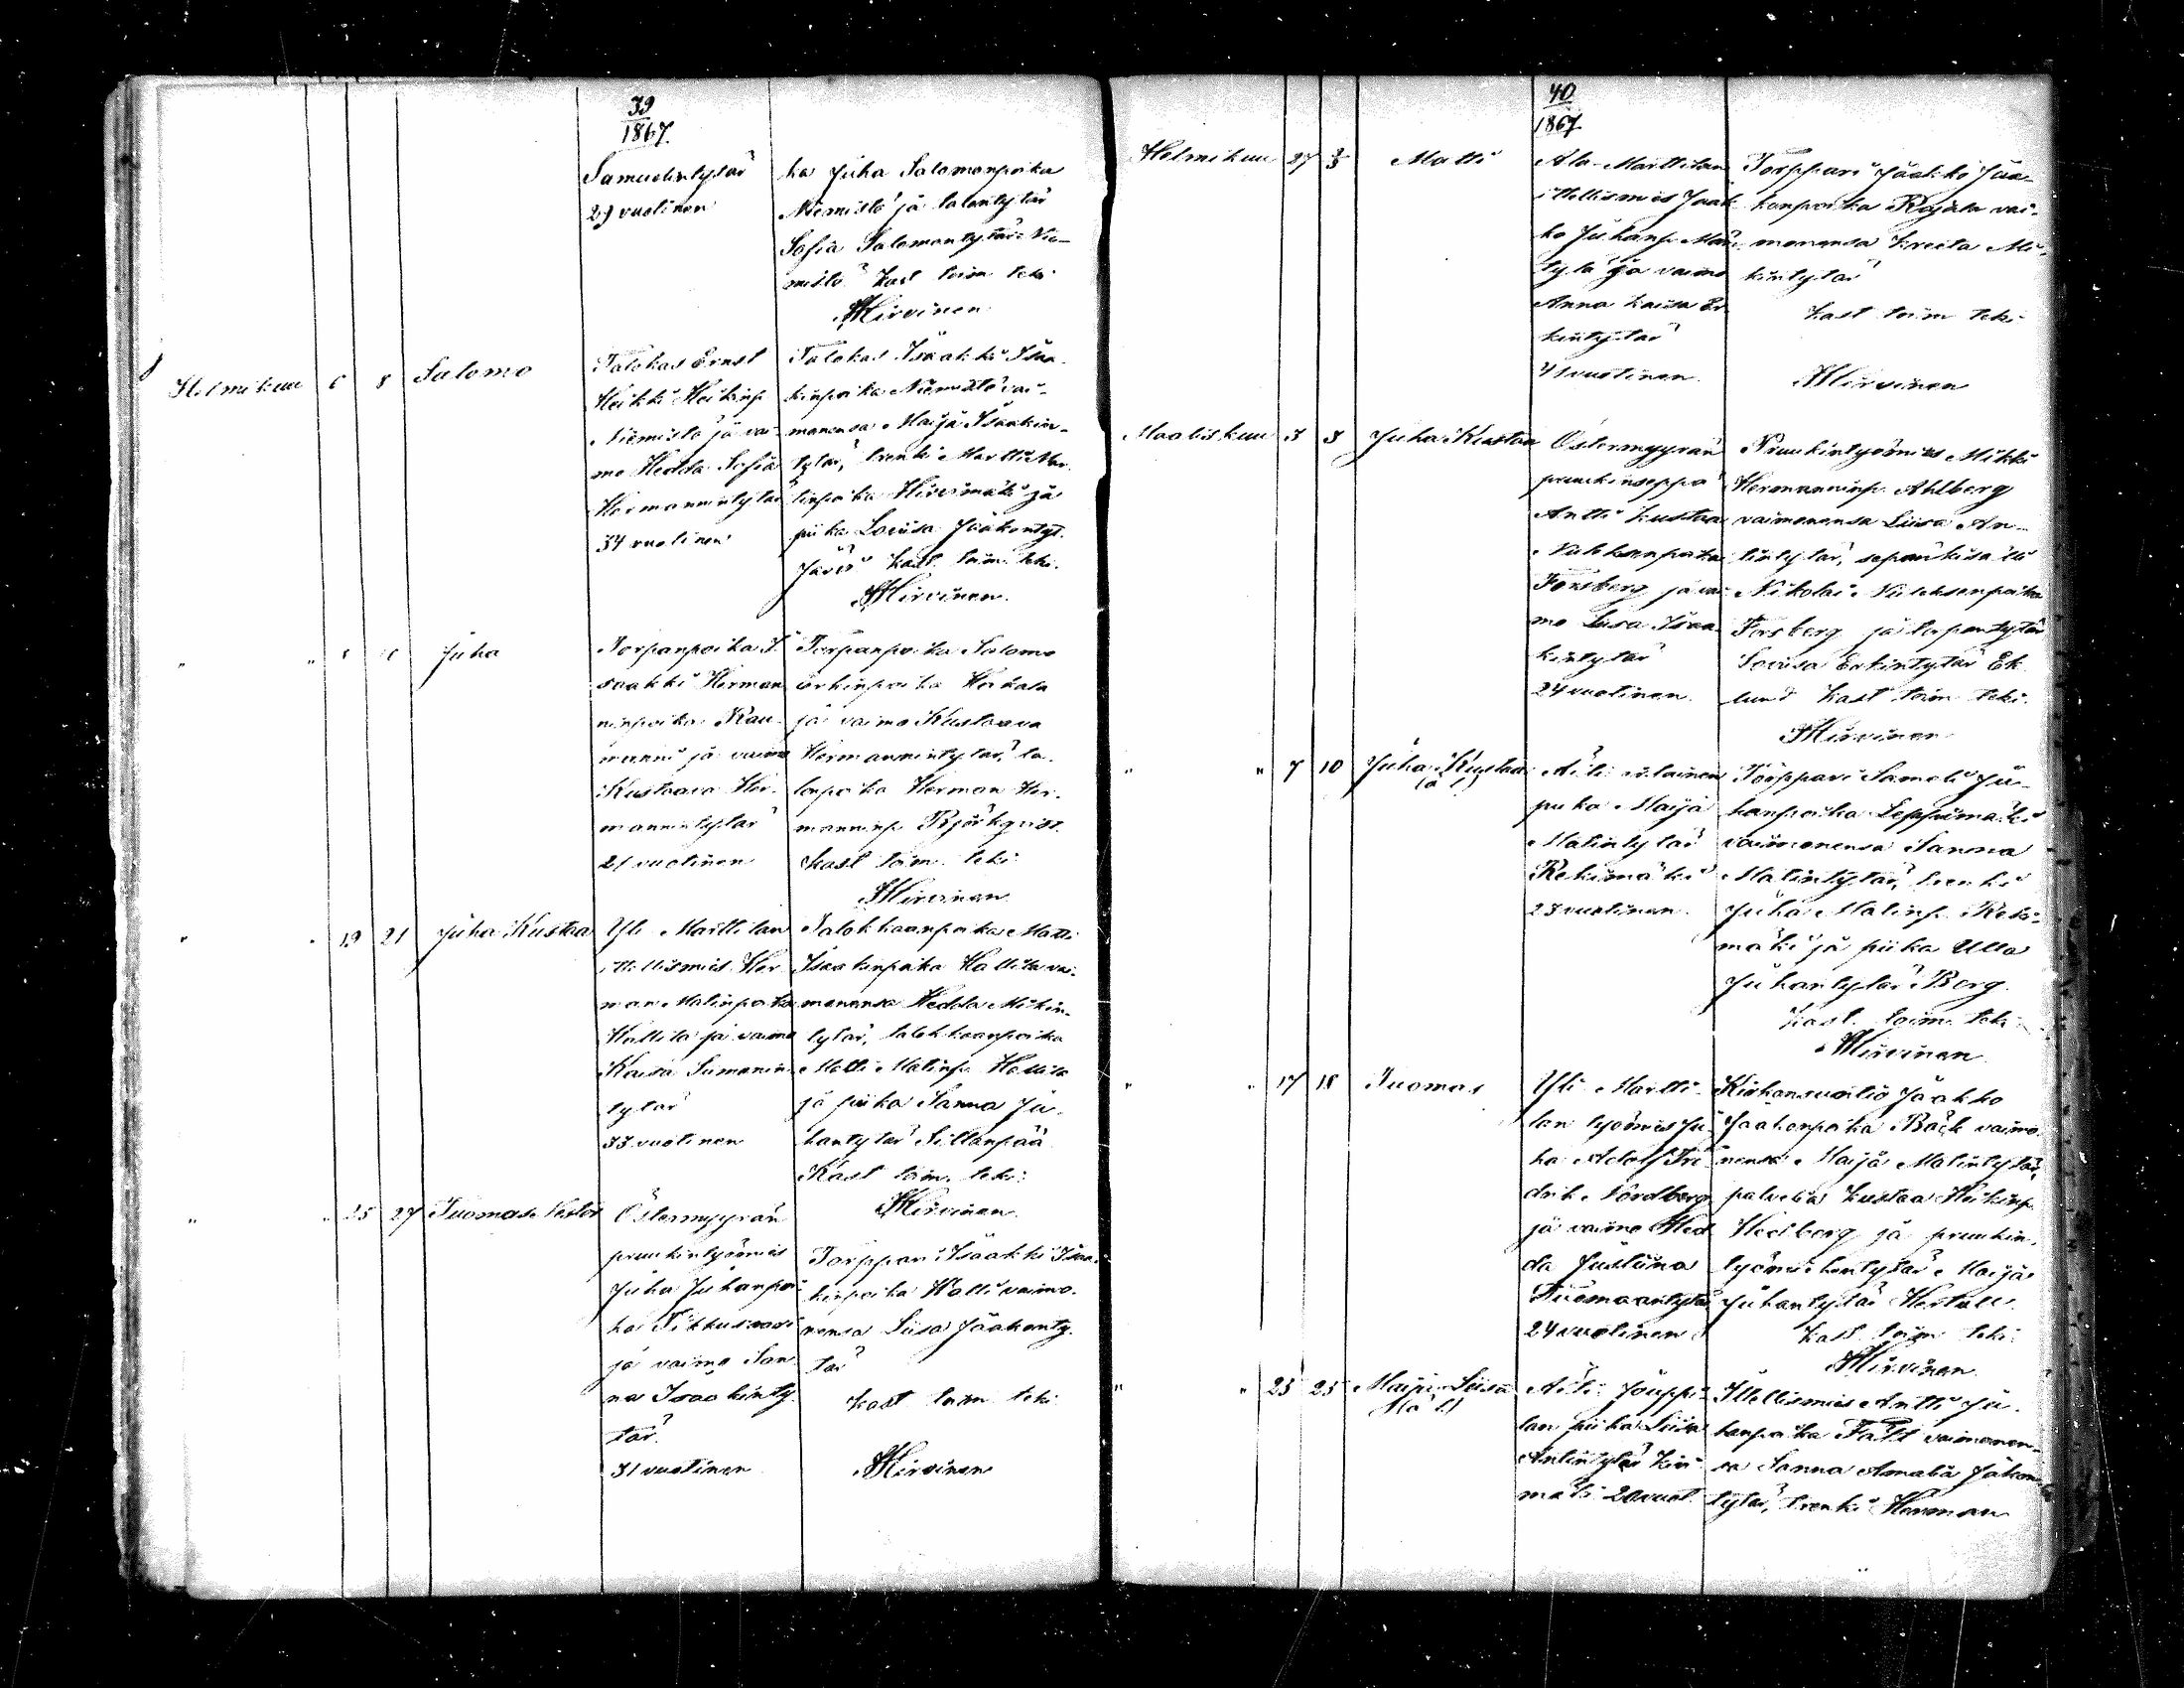 39
1867.
Samuelintytär
29 vuotinen
ka Juha Salomonpoika
Niemistö ja talontytär
Sofia Salomontytär Nie-
mistö Kast toim teki
Hirvinen
Helmikuu 6 8 Salomo
Talokas Ernst
Heikki Heikinp
Niemistö ja vai-
mo Hedda Sofia
Hermannintytär
34 vuotinen
Talokas Isaakki Isaa-
kinpoika Niemistö vai-
monensa Maija Isaakin-
tytär, trenki Martti Mar-
tinpoika Hirsimäki ja
piika Loviisa Jaakontyt.
Kast. toim. teki.
Hirvinen.
" " Juha
Torpanpoika I-
saakki Herman
ninpoika Rau-
manni ja vaimo
Kustaava Her-
mannintytär
21 vuotinen
Torpanpoika Salomo
Erkinpoika
ja vaimo Kustaava
Hermannintytär, ta-
lonpoika Herman Her-
manninp. Björkqvist.
Kast toim. teki
Hirvinen
" " 19 21 Juha Kustaa
Yli Marttilan
ittellismies Her-
man Matinpoika
Hallila ja vaimo
Kaisa Simonin-
tytär
33 vuotinen
Talokkaanpoika Matti
Isaakinpoika Hallila vai-
monensa Hedda Mikin-
tytär, talokkaanpoika
Matti Matinp. Hallila
ja piika Sanna Ju-
hantytär Sillanpää
Kast toim. teki:
Hirvinen.
" " 25 27 Tuomas Nestor
Östermyyrän
pruukintyömies
Juha Juhanpoi-
ka
ja vaimo San-
na Isaakinty-
tär.
31 vuotinen
Torppari Isaakki Isaa-
kinpoika Halli vaimo-
nensa Liisa Jaakonty-
tär
Kast toim teki
Hirvinen
40
1867
Helmikuu 27 2/3 Matti
Ala-Marttilan
ittellismies Jaak-
ko Juhanp. Män-
tylä ja vaimo
Anna Kaisa Er-
kintytär
41 vuotinen.
Torppari Jaakko Jaa-
konpoika Rajala vai-
monensa Kreeta Mi-
kintytär
Kast toim teki
Hirvinen
Maaliskuu 3 3 Juha Kustaa
Östermyyrän
pruukinseppä
Antti Kustaa
Niileksenpoika
Forsberg ja vai-
mo Liisa Isaa-
kintytär
24 vuotinen.
Pruukintyömies Mikki
Hermanninp. Ahlberg
vaimonensa Liisa An-
tintytär, sepänkisälli
Nikolai Niileksenpoika
Forsberg ja torpantytär
Loviisa Erkintytär Ek-
lund Kast toim teki.
Hirvinen
" " 7 10 Juha Kustaa
(ä l)
Äiti
piika Maija
Matintytär
Rekimäki
23 vuotinen.
Torppari Sameli Ju-
hanpoika Leppimäki
vaimonensa Sanna
Matintytär, trenki
Juha Matinp. Reki-
mäki ja piika Ulla
Juhantytär Berg.
Kast. toim. teki
Hirvinen
" " 17 18 Tuomas
Yli Martti-
lan työmies Ju-
ha Adolf Fre-
drik Nordberg
ja vaimo Hed-
da Justiina
Tuomaantytär
24 vuotinen
Kirkonsuntio Jaakko
Jaakonpoika Bäck vaimo-
nensa Maija Matintytär,
palvelia Kustaa Heikinp.
Hedberg ja pruukin-
työmiehentytär Maija
Juhantytär
Kast. toim teki
Hirvinen.
" " 23 25 Maija Liisa
(ä l)
Äiti Jouppi-
lan piika Liisa
Antintytär Kivi-
mäki 20 vuot.
Ittellismies Antti Ju-
hanpoika Fält vaimonen-
sa Sanna Amalia Jakon-
tytär, trenki Herman